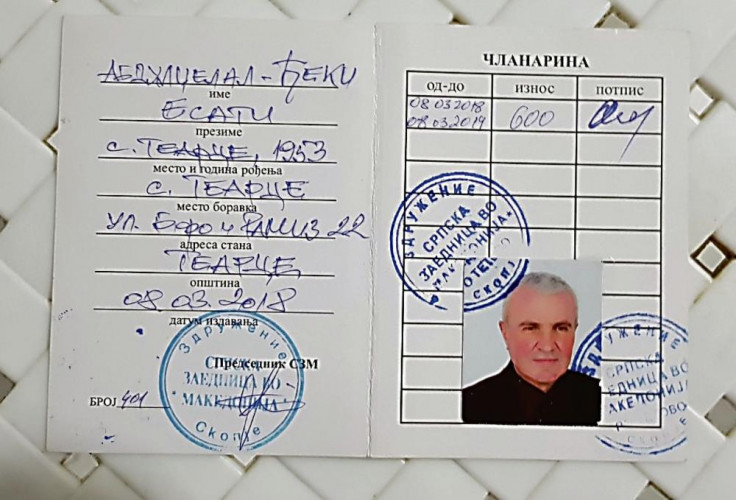 АБДУЛЏЕЛАЛ - ЂЕКИ
име
ЕСАТИ
презиме
с. ТЕАРЦЕ, 1953
место и година рођења
с. ТЕАРЦЕ
место боравка
УЛ. БЕФО И РАМИЗ 22
адреса стана
ТЕАРЦЕ
општина
08.03.2018
датум издавања
Председник СЗМ
БРОЈ 401
Здружение
СРПСКА
ЗАЕДНИЦА ВО
МАКЕДОНИЈА
Скопје
ЧЛАНАРИНА
од-до износ потпис
08.03.2018 600
08.03.2019
ЗДРУЖЕНИЕ
СРПСКА
ЗАЕДНИЦА ВО
СКОПЈЕ
ЗДРУЖЕНИЕ
СРПСКА
ЗАЕДНИЦА ВО
МАКЕДОНИЈА